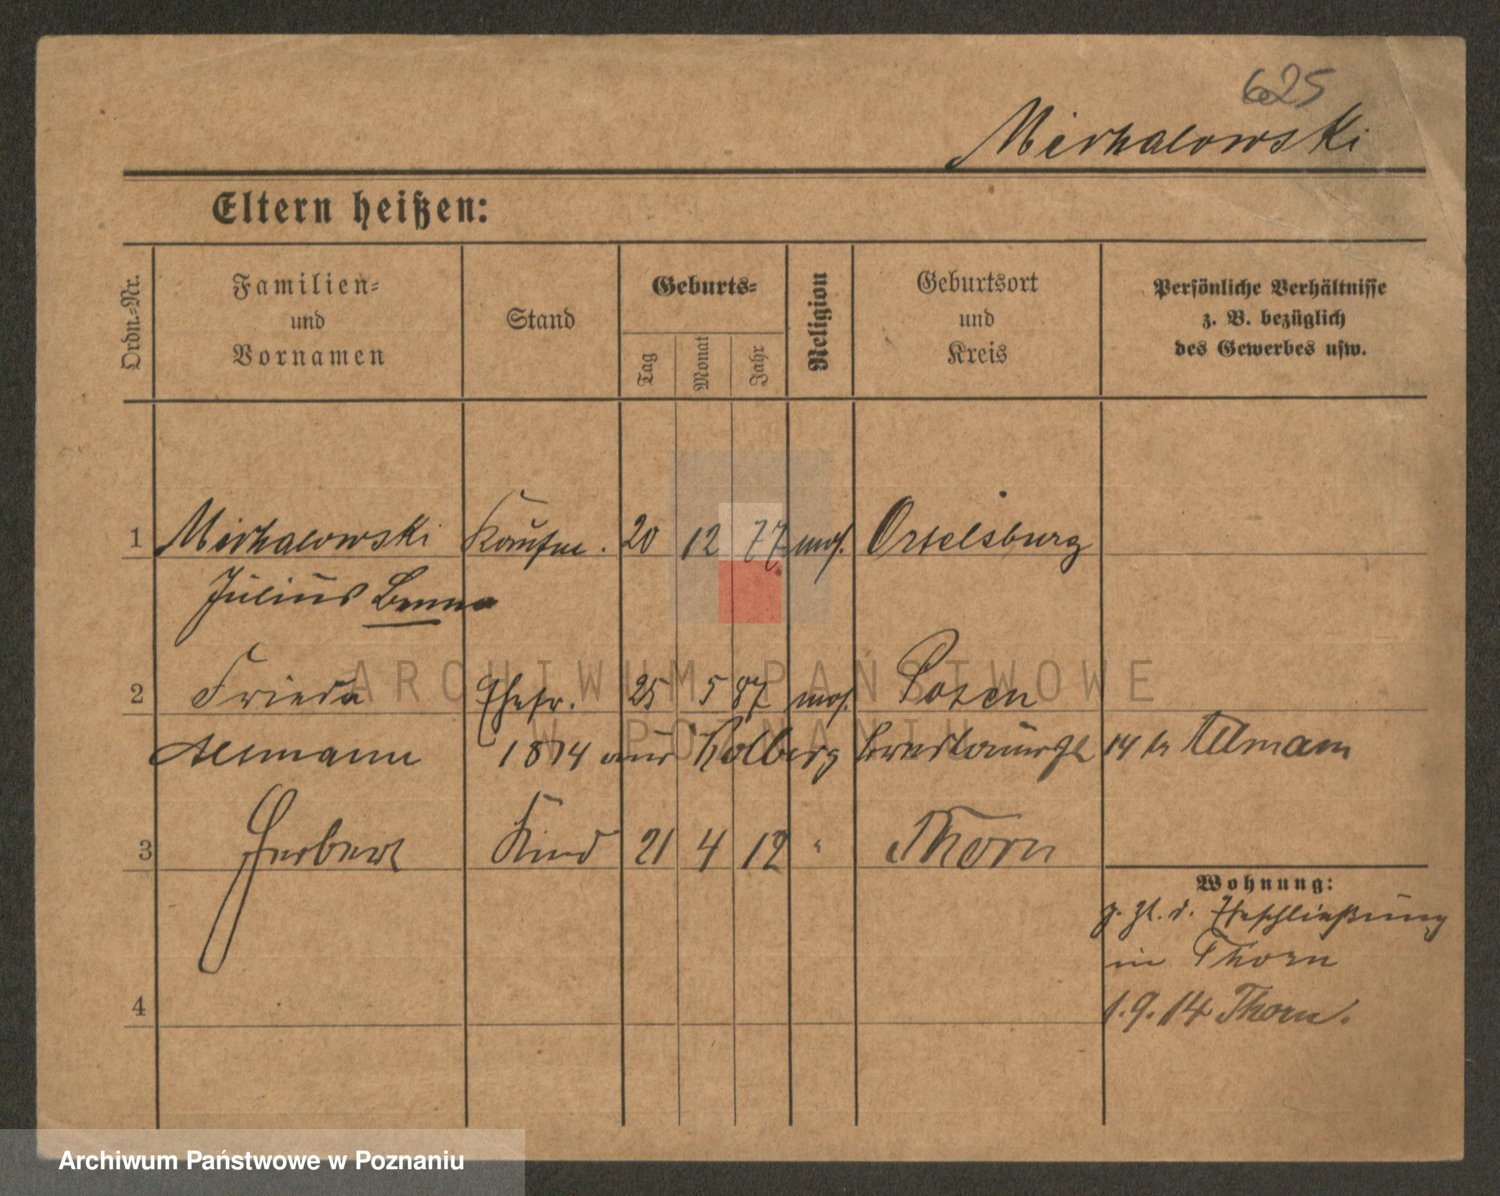 625
Michalowski
Eltern heißen:
Ordn.-Nr.
Familien-
und
Vornamen
Stand
Geburts-
Tag
Monat
Jahr
Religion
Geburtsort
und
Kreis
Persönliche Verhältnisse
z. B. bezüglich
des Gewerbes usw.
1 Michalowski Kaufm. 20 12 77 mos. Ortelsburg
Julius Benno
2 Frieda Ehefr. 25 5 87 mos. Posen
Aßmann 1814 aus Kolberg 14 br
3 Herbert Kind 21 4 12 " Thorn
Wohnung:
z. Zt. d. Eheschließung
in Thorn
4
1.9.14 Thorn.
ARCHIWUM PAŃSTWOWE
W POZNANIU
Archiwum Państwowe w Poznaniu